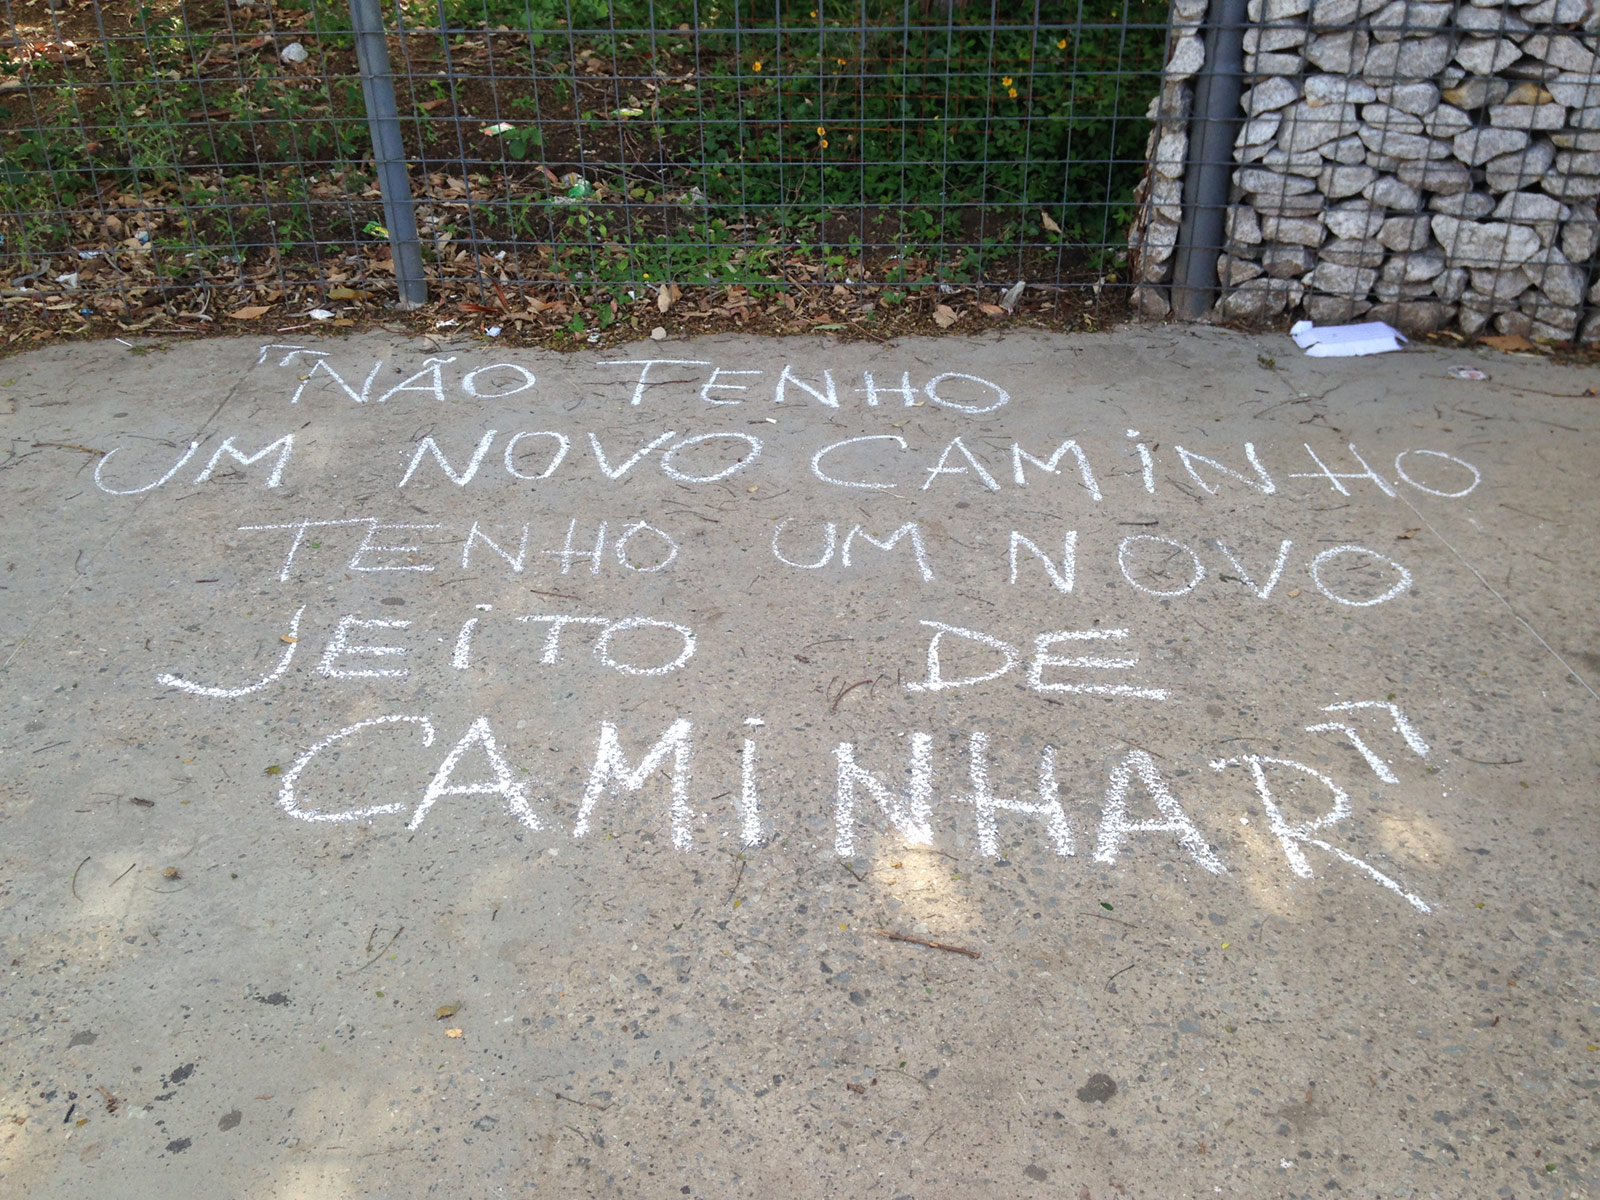 "NÃO TENHO
UM NOVO CAMINHO
TENHO UM NOVO
JEITO DE
CAMINHAR"